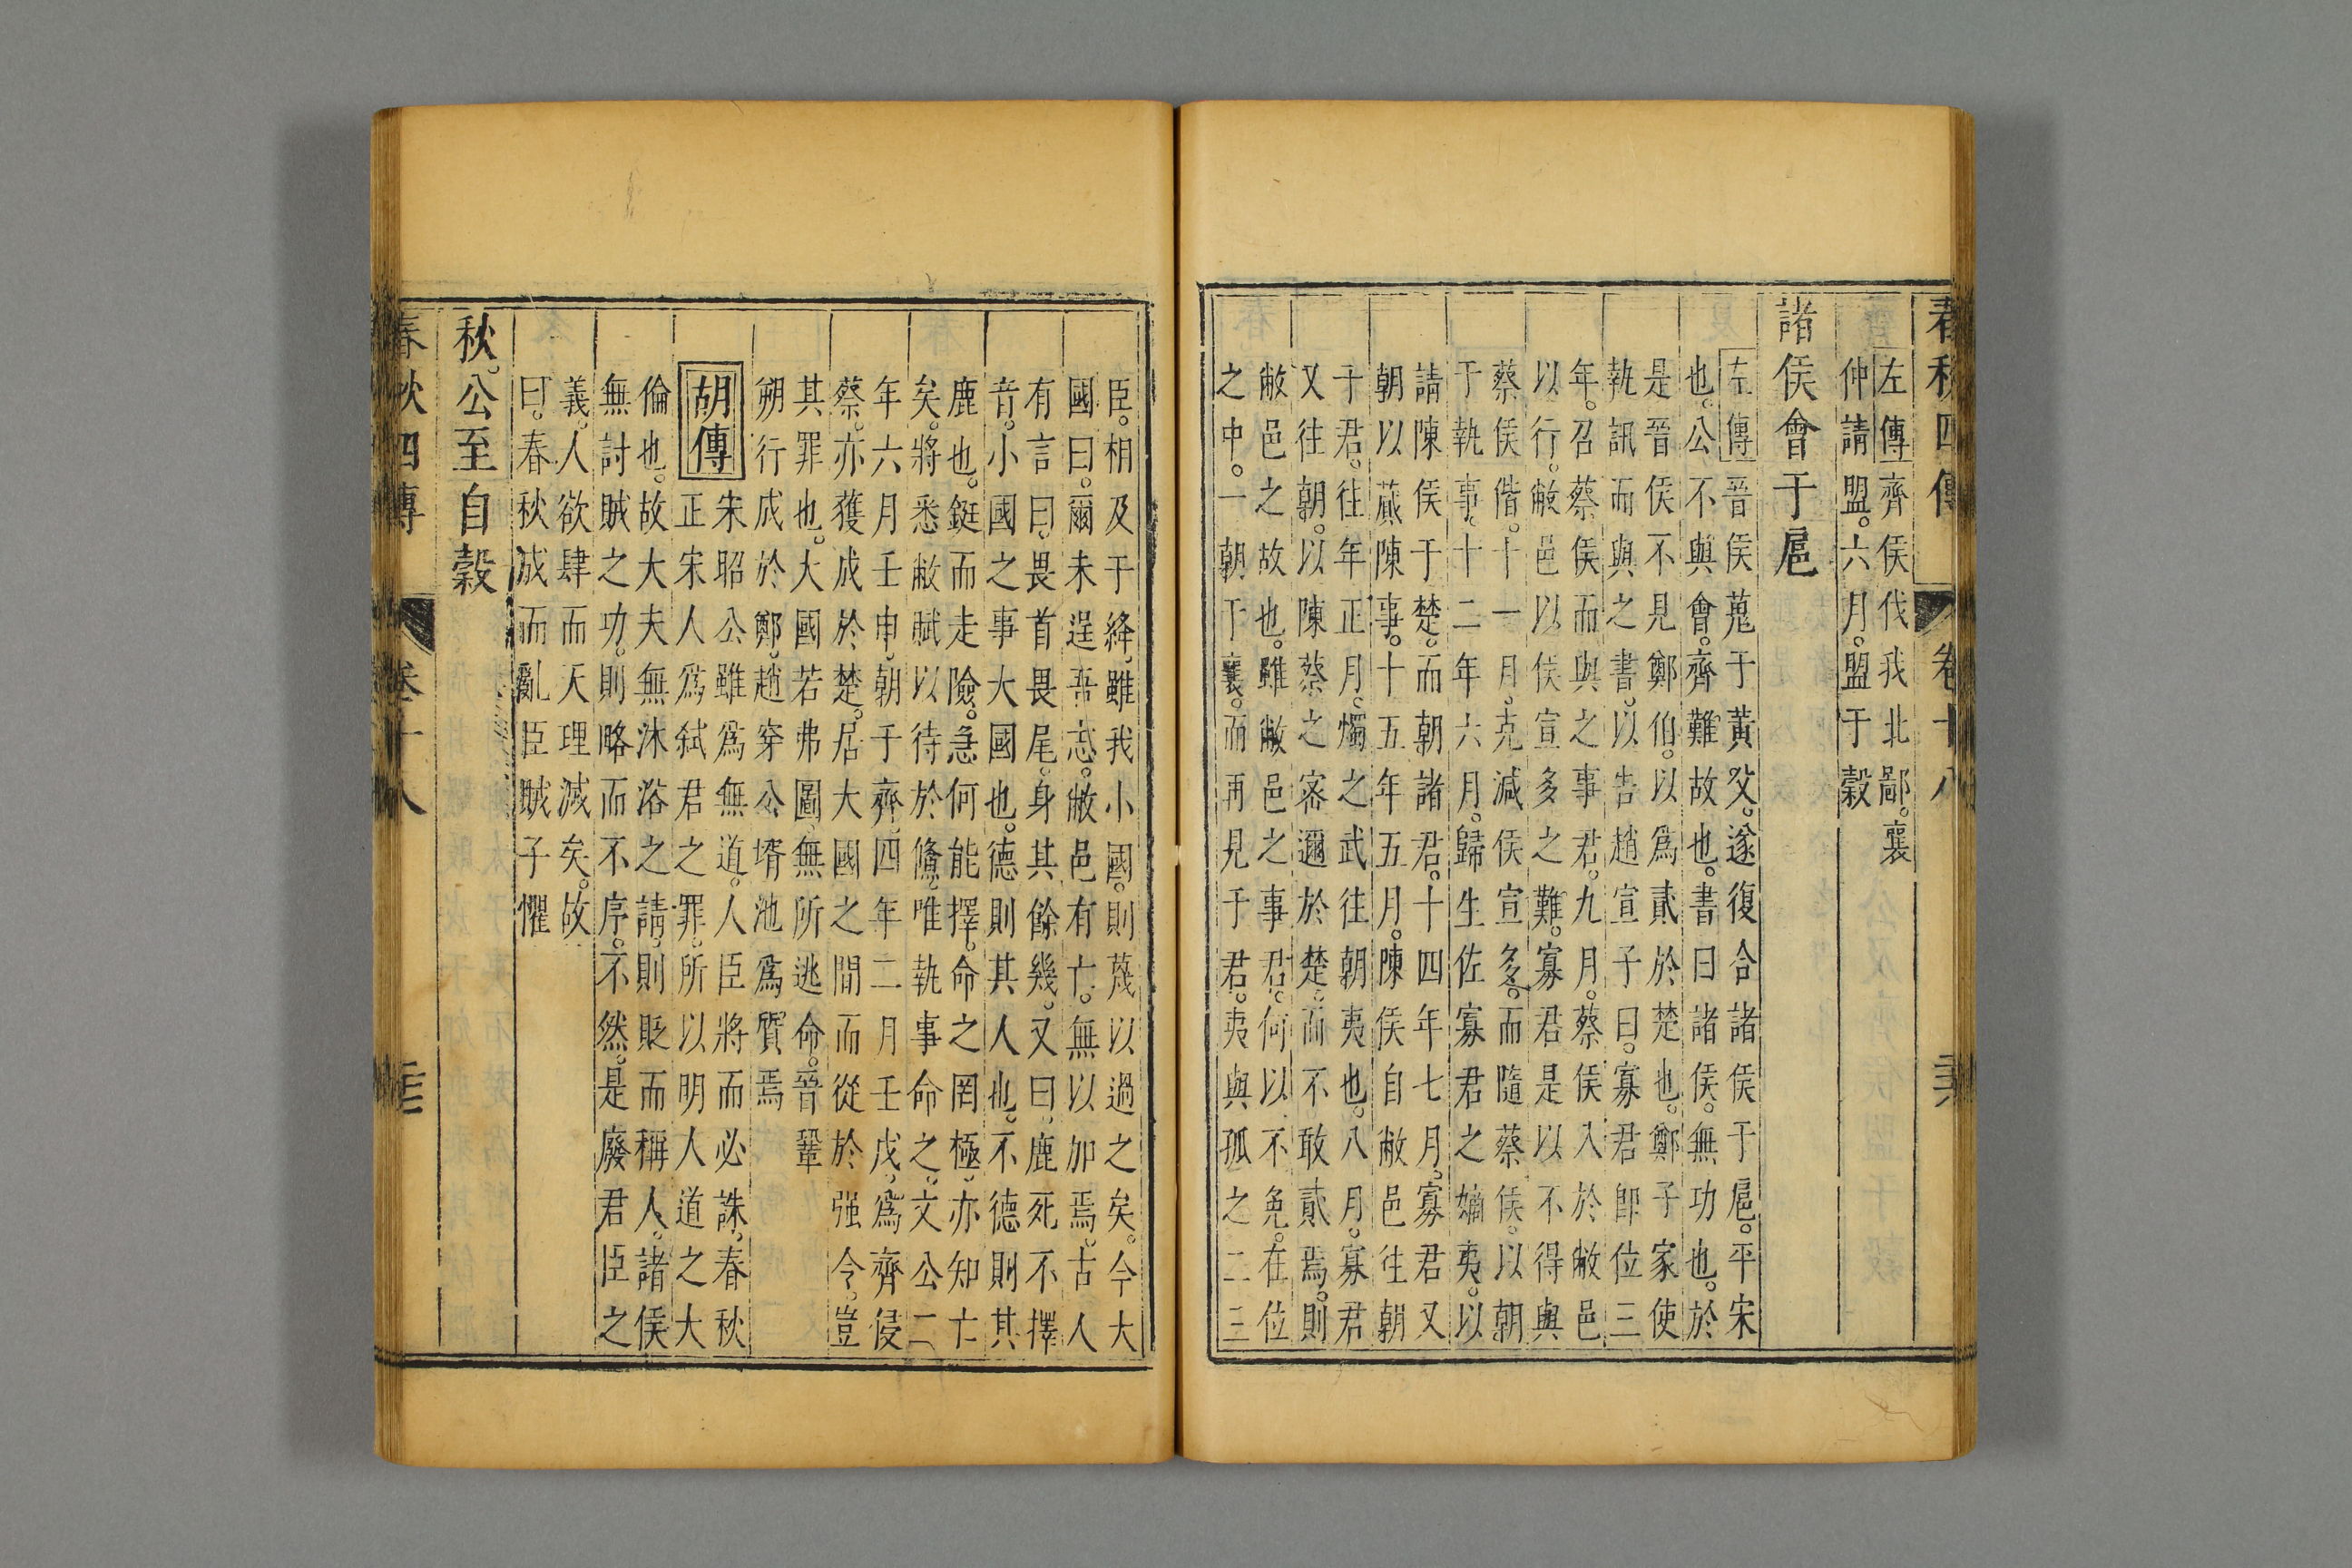 春秋四傳 卷十八
左傳齊侯伐我北鄙。襄
仲請盟。六月。盟于穀
諸侯會于扈
左傳晉侯蒐于黃父。遂復合諸侯于扈。平宋
也。公不與會。齊難故也。書曰諸侯。無功也。於
是晉侯不見鄭伯。以爲貳於楚也。鄭子家使
執訊而與之書。以告趙宣子曰。寡君即位三
年。召蔡侯而與之事君。九月。蔡侯入於敝邑
以行。敝邑以侯宣多之難。寡君是以不得與
蔡侯偕。十一月。克減侯宣多。而隨蔡侯。以朝
于執事。十二年六月。歸生佐寡君之嫡夷。以
請陳侯于楚。而朝諸君。十四年七月。寡君又
朝以蕆陳事。十五年五月。陳侯自敝邑往朝
于君。往年正月。燭之武往朝夷也。八月。寡君
又往朝。以陳蔡之密邇於楚。而不敢貳焉。則
敝邑之故也。雖敝邑之事君。何以不免。在位
之中。一朝于襄。而再見于君。夷與孤之二三
臣。相及于絳。雖我小國。則蔑以過之矣。今大
國曰。爾未逞吾志。敝邑有亡。無以加焉。古人
有言曰。畏首畏尾。身其餘幾。又曰。鹿死不擇
音。小國之事大國也。德則其人也。不德則其
鹿也。鋌而走險。急何能擇。命之罔極。亦知亡
矣。將悉敝賦以待於鯈。唯執事命之。文公二
年六月壬申。朝于齊。四年二月壬戌。爲齊侵
蔡。亦獲成於楚。居大國之間而從於强令。豈
其罪也。大國若弗圖。無所逃命。晉鞏
朔行成於鄭。趙穿公壻池爲質焉
胡傳宋昭公雖爲無道。人臣將而必誅。春秋
正宋人爲弑君之罪。所以明人道之大
倫也。故大夫無沐浴之請。則貶而稱人。諸侯
無討賊之功。則略而不序。不然。是廢君臣之
義。人欲肆而天理滅矣。故
曰。春秋成而亂臣賊子懼
秋。公至自穀
春秋四傳 卷十八